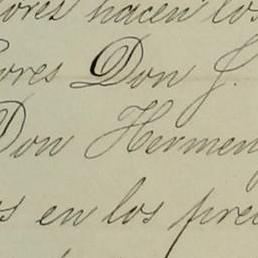 ores hacen los
ores Don J.
Don Hermen
s en los pre